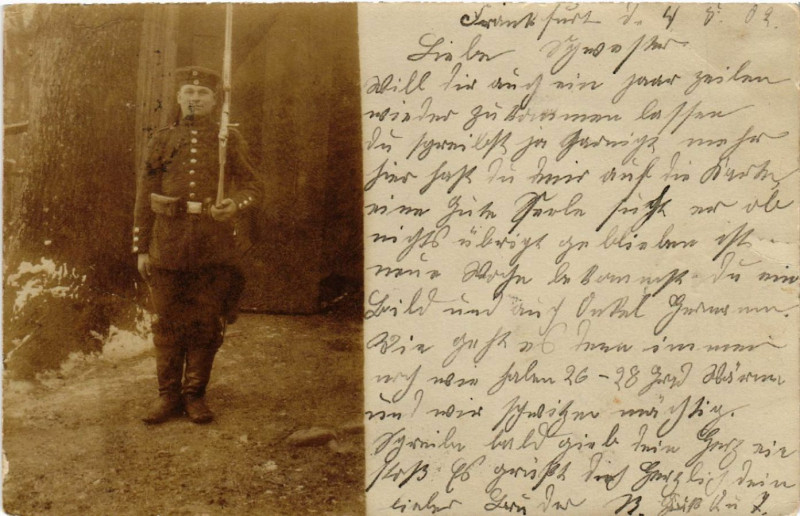 Frankfurt d. 4 5. 02.
Liebe Schwester
Will dir auch ein paar zeilen
wieder zukommen lassen
du schreibst ja garnigt mehr
hier hast du mir auf die Karte
eine gute Seele sucht er ob
nichts übrigt geblieben ist
neue Woche bekommst du ein
Bild und auch Onkel Hermann.
Wie geht es denn immer
noch wir haben 26 - 28 Grd Wärme
und wir schwitzen mächtig.
Schreibe bald gieb dein Herz ein
stoß. Es grüßt dich Herzlich dein
lieber Bruder